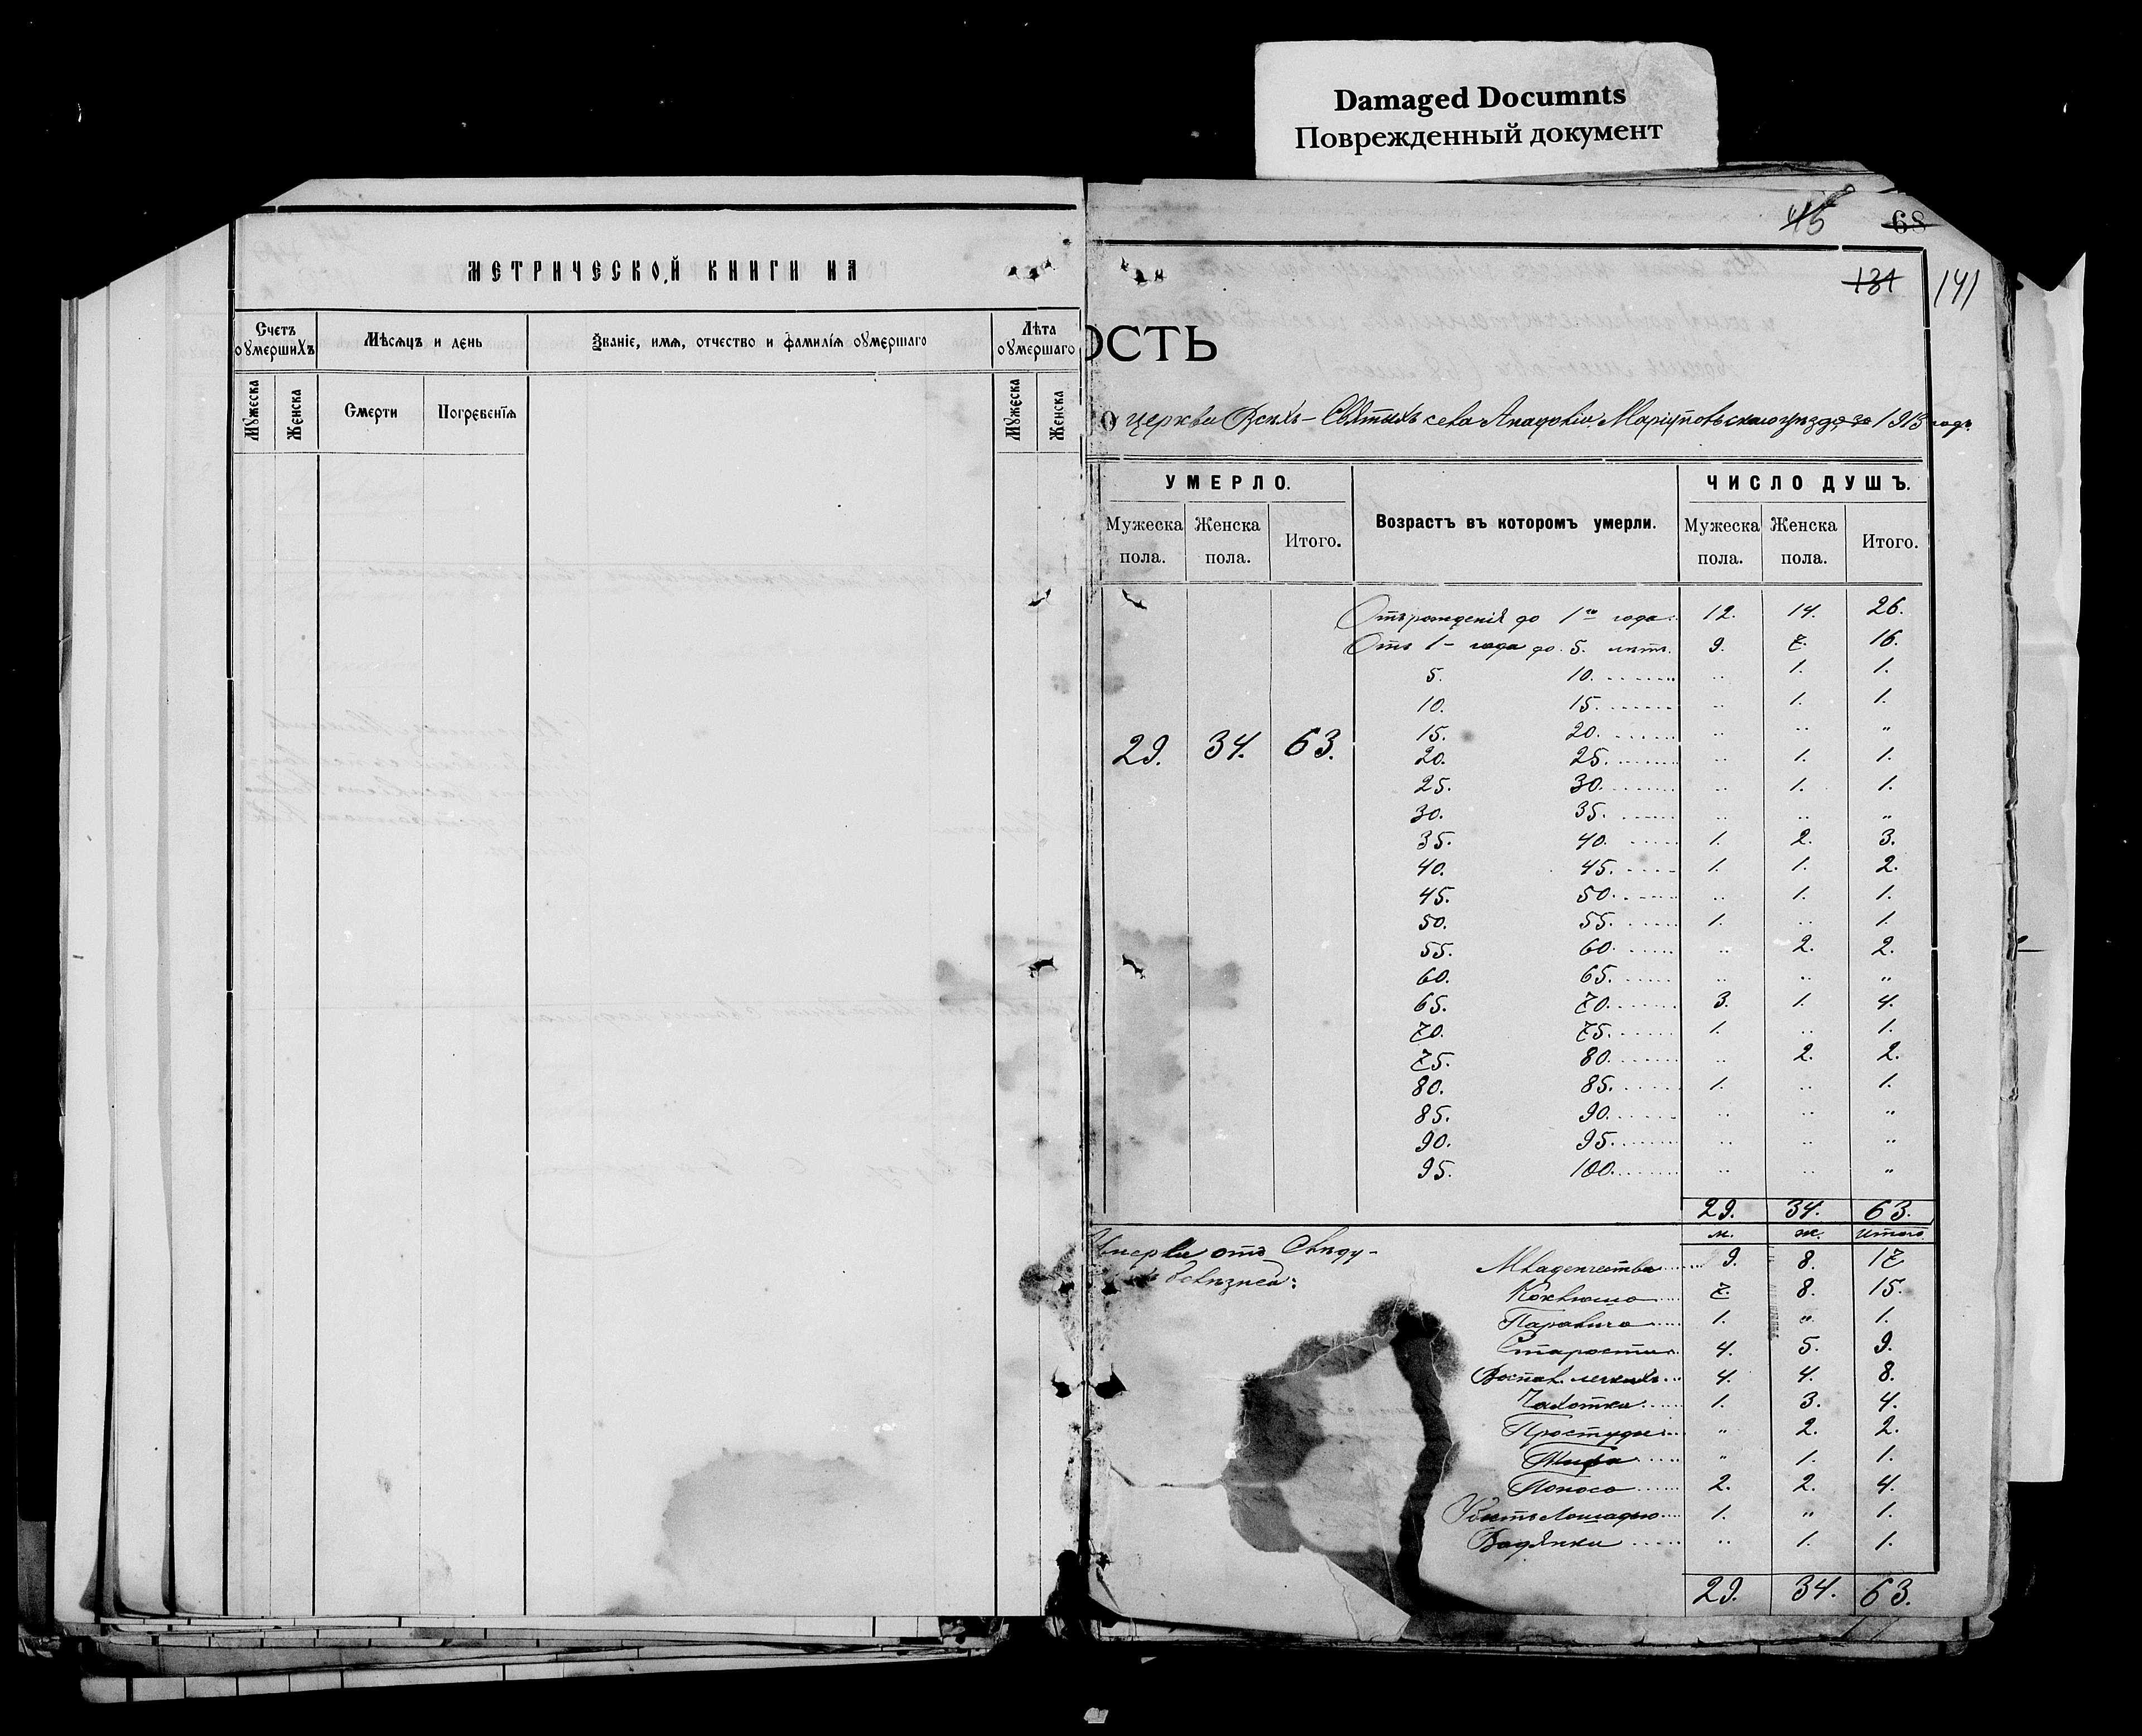 Damaged Documnts
Поврежденный документ
МЕТРИЧЕСКОЙ КНИГИ НА
Счетъ оумершихъ
Мѣсяцъ и день
Званіе, имя, отчество и фамилія оумершаго
Лѣта оумершаго
Мужеска
Женска
Смерти
Погребенія
Мужеска
Женска
45 68
131 141
ОСТЬ
О церкви Всѣхъ-Святыхъ села Анадоліи, Маріупольскаго уѣзда за 1913 годъ.
УМЕРЛО.
Возрастъ въ которомъ умерли.
ЧИСЛО ДУШЪ.
Мужеска пола.
Женска пола.
Итого.
Мужеска пола.
Женска пола.
Итого.
Отъ рожденія до 1го года. 12. 14. 26.
Отъ 1-года до 5. лѣтъ. 9. 7. 16.
5. 10. .. 1. 1.
10. 15. .. 1. 1.
15. 20. .. .. "
29. 34. 63.
20. 25. .. 1. 1.
25. 30. .. 1. 1.
30. 35. .. .. "
35. 40. 1. 2. 3.
40. 45. 1. 1. 2.
45. 50. .. 1. 1.
50. 55. 1. .. 1.
55. 60. .. 2. 2.
60. 65. .. .. "
65. 70. 3. 1. 4.
70. 75. 1. .. 1.
75. 80. .. 2. 2.
80. 85. 1. .. 1.
85. 90. .. .. "
90. 95. .. .. "
95. 100. .. .. "
29. 34. 63.
м. ж. итого.
Умерли отъ слѣду-
болѣзней:
Младенчества 9. 8. 17
Коклюша 7. 8. 15.
Паралича 1. " 1.
Старости 4. 5. 9.
Воспал. легкихъ 4. 4. 8.
Чахотки 1. 3. 4.
Простуды " 2. 2.
Тифа " 1. 1.
Поноса 2. 2. 4.
Убитъ лошадью 1. " 1.
Водянки .. 1. 1.
29. 34. 63.